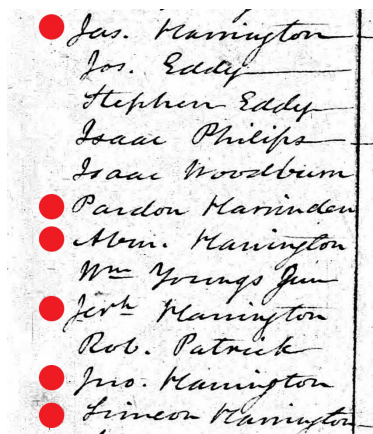 Jas. Harrington
Jos. Eddy
Stephen Eddy
Isaac Philips
Isaac Woodburn
Pardon Harrinden
Abm. Harrington
Wm Youngs Jun
Jerh Harrington
Rob. Patrick
Jno. Harrington
Simeon Harrington